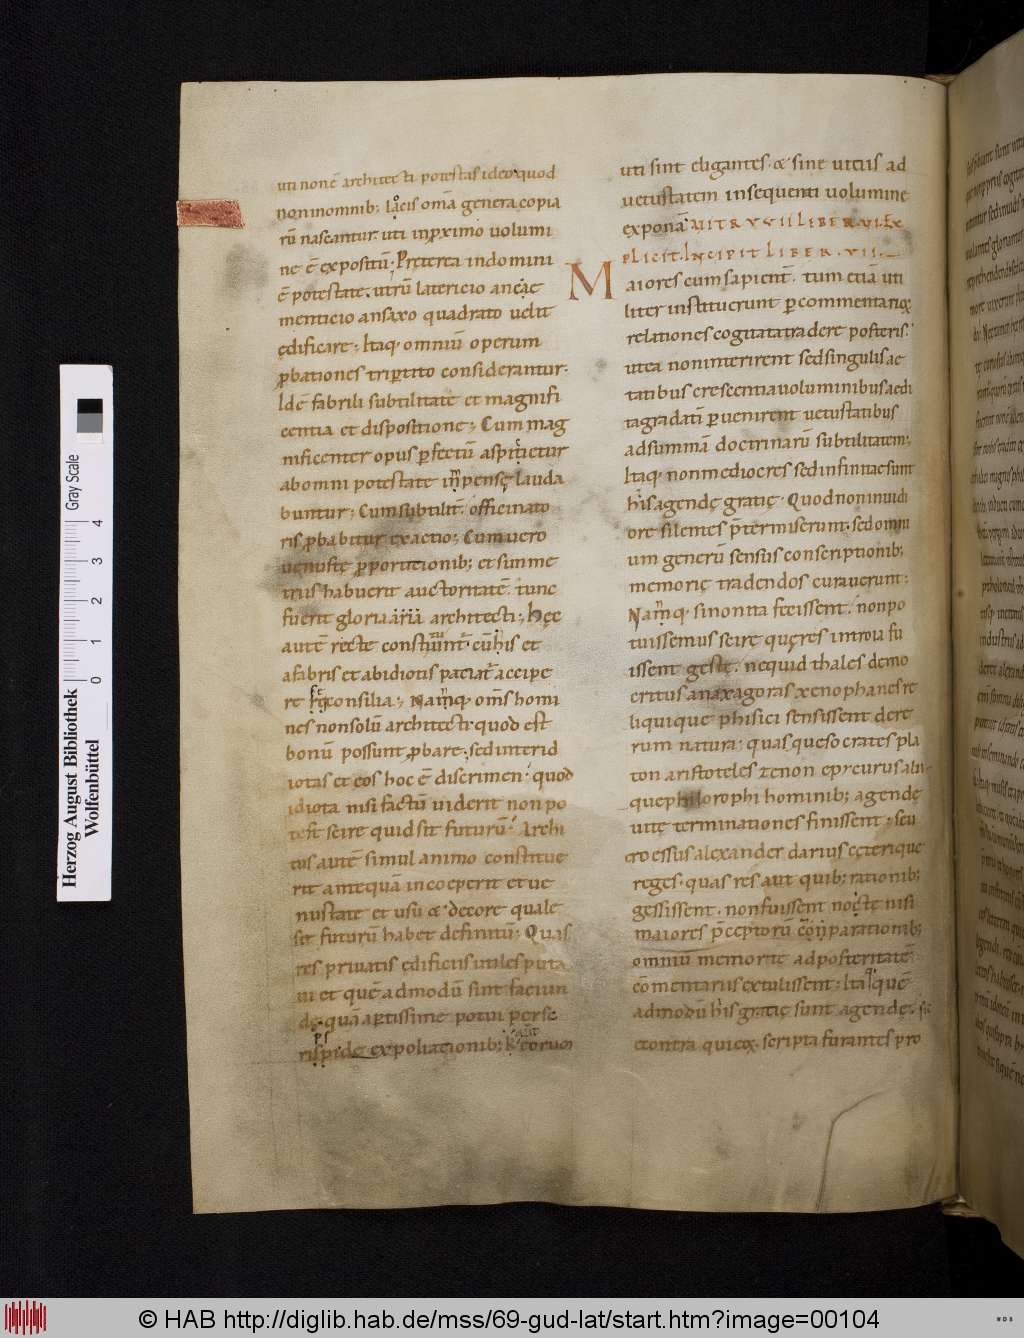 uti non ē architecti potestas ideo quod
non in omnib; locis om̄a genera copia
rū nascantur. uti in p̱ximo uolumi
ne ē expositū; Pręterea in domini
ē potestate. utrū latericio an cęde
menticio an saxo quadrato uelit
ędificare; Itaq; omniū operum
p̱bationes trip̱tito considerantur.
Idē fabrili subtilitate et magnifi
centia et dispositione; Cum mag
nificenter opus p̱fectū aspicietur
ab omni potestate inpensę lauda
buntur; Cum subtilit̄. officinato
ris p̱babitur exactio; Cum uero
uenuste p̱portionib; et simme
triis habuerit auctoritatē. tunc
fuerit gloria architecti; hęc
autē recte constituunt̄. cū his et
a fabris et ab idiotis patiat̄ accipe
re consilia; Namq; om̄s homi
nes non solū architecti quod est
bonū possunt p̱bare; sed inter id
iotas et eos hoc ē discrimen. quod
idiota nisi factū uiderit non po
test scire quid sit futurū. Archi
tus autē simul animo constitue
rit antequā incoeperit et ue
nustate et usū & decore quale
sit futurū habet definitū; Quas
res priuatis ędificiis utiles puta
ui et quēadmodū sint faciun
de quā ap̱tissime potui p̱scr
de expoliationib; eorum
uti sint eligantes. & sine uitiis ad
uetustatem insequenti uolumine
exponā VITRVVII LIBER VI. EX
PLICIT. INCIPIT LIBER. VII.
Maiores cum sapient̄. tum etiā uti
liter instituerunt p̱ commentarioꝝ
relationes cogitata tradere posteris.
ut ea non interirent sed singulis ae
tatibus crescentia uoluminibus aedi
ta gradatī p̱uenirent uetustatibus
ad summā doctrinarū subtilitatem;
Itaq; non mediocres sed infinitae sunt
his agendę gratię. Quod non inuidi
ose silentes p̄termiserunt. sed omni
um generū sensus conscriptionib;
memorię tradendos curauerunt;
Namq; si non ita fecissent. non po
tuissemus scire quęres in troia fu
issent gestę. nec quid thales demo
critus anaxagoras xenophanes re
liquique phisici sensissent de re
rum natura. quas que socrates pla
ton aristoteles zenon epicurus alii
que philosophi hominib; agendę
uitę terminationes finissent. seu
croessus alexander darius cęterique
reges. quas res aut quib; rationib;
gessissent. non fuissent noctę nisi
maiores p̄ceptorū comparationib;
omniū memorię ad posteritatē
cōmentariis extulissent; Itaq; quē
admodū his gratię sunt agendę. sic
contra qui eoꝝ. scripta furantes pro
Herzog August Bibliothek
Wolfenbüttel
0 1 2 3 4
Gray Scale
© HAB http://diglib.hab.de/mss/69-gud-lat/start.htm?image=00104